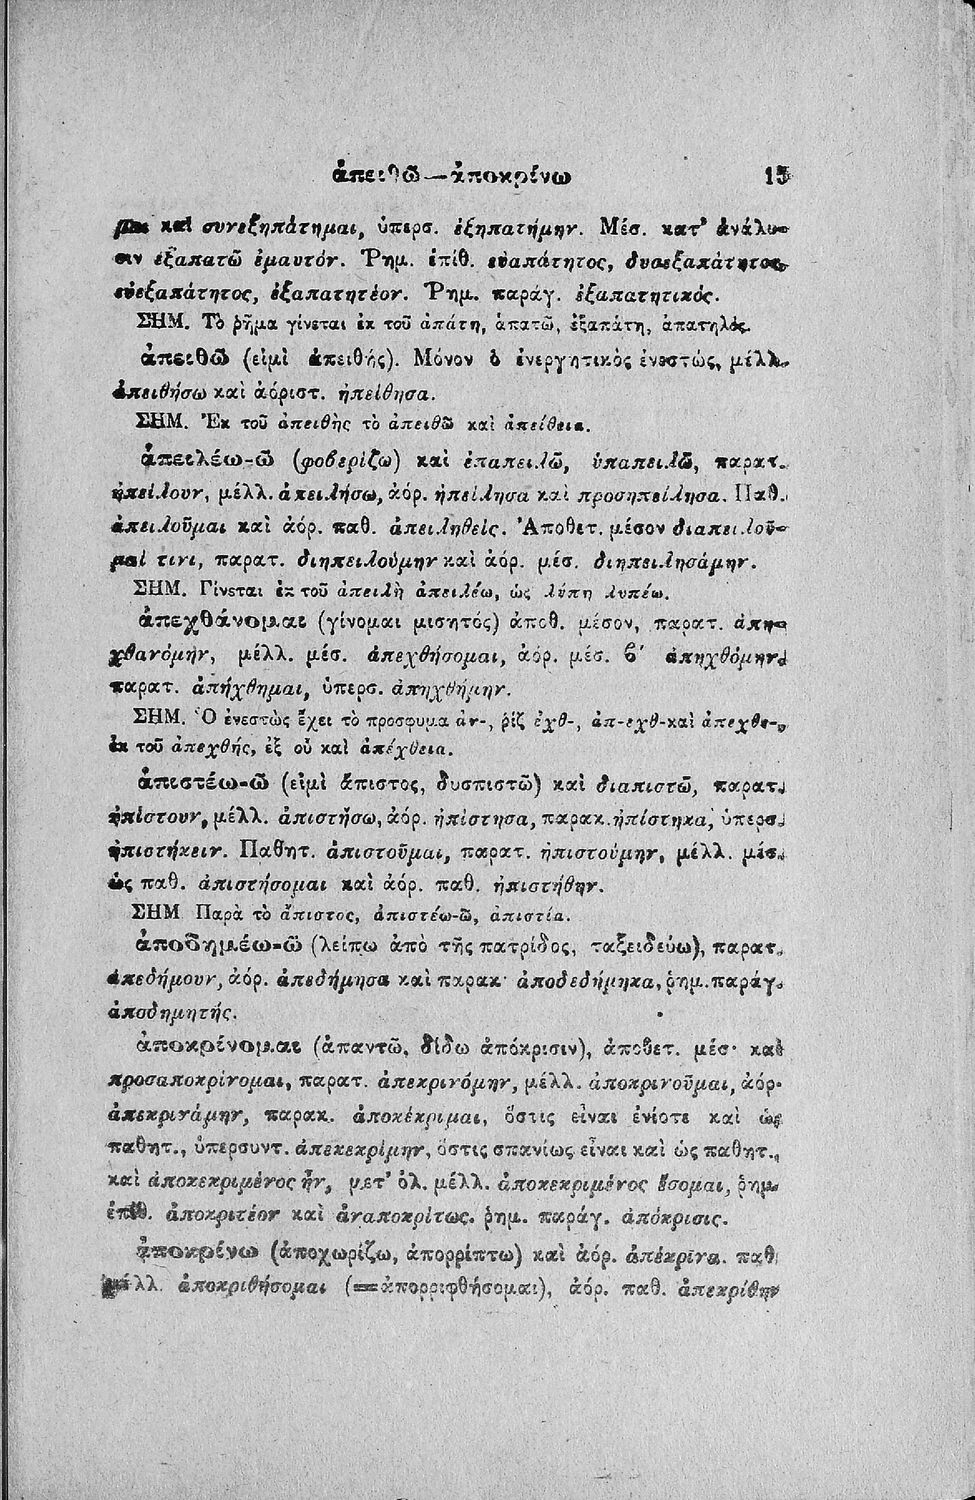 ἀπειθῶ — ἀποκρίνω 15
μαι καὶ συνεξηπάτημαι, ὑπερσ. ἐξηπατήμην. Μέσ. κατ' ἀνάλυ-
σιν ἐξαπατῶ ἐμαυτόν. Ῥημ. ἐπίθ. εὐαπάτητος, δυσεξαπάτητος,
εὐεξαπάτητος, ἐξαπατητέον. Ῥημ. παράγ. ἐξαπατητικός.
ΣΗΜ. Τὸ ῥῆμα γίνεται ἐκ τοῦ ἀπάτη, ἀπατῶ, ἐξαπάτη, ἀπατηλός.
ἀπειθῶ (εἰμὶ ἀπειθής). Μόνον ὁ ἐνεργητικὸς ἐνεστώς, μέλλ.
ἀπειθήσω καὶ ἀόριστ. ἠπείθησα.
ΣΗΜ. Ἐκ τοῦ ἀπειθὴς τὸ ἀπειθῶ καὶ ἀπείθεια.
ἀπειλέω-ῶ (φοβερίζω) καὶ ἐπαπειλῶ, ὑπαπειλῶ, παρατ.
ἠπείλουν, μέλλ. ἀπειλήσω, ἀόρ. ἠπείλησα καὶ προσηπείλησα. Παθ.
ἀπειλοῦμαι καὶ ἀόρ. παθ. ἀπειληθείς. Ἀποθετ. μέσον διαπειλοῦ-
μαί τινι, παρατ. διηπειλούμην καὶ ἀόρ. μέσ. διηπειλησάμην.
ΣΗΜ. Γίνεται ἐκ τοῦ ἀπειλὴ ἀπειλέω, ὡς λύπη λυπέω.
ἀπεχθάνομαι (γίνομαι μισητός) ἀποθ. μέσον, παρατ. ἀπη-
χθανόμην, μέλλ. μέσ. ἀπεχθήσομαι, ἀόρ. μέσ. β' ἀπηχθόμην,
παρατ. ἀπήχθημαι, ὑπερσ. ἀπηχθήμην.
ΣΗΜ. Ὁ ἐνεστὼς ἔχει τὸ προσφυμα ἀν-, ῥίζ ἐχθ-, ἀπ-εχθ-καὶ ἀπεχθε-,
ἐκ τοῦ ἀπεχθής, ἐξ οὗ καὶ ἀπέχθεια.
ἀπιστέω-ῶ (εἰμὶ ἄπιστος, δυσπιστῶ) καὶ διαπιστῶ, παρατ.
ἠπίστουν, μέλλ. ἀπιστήσω, ἀόρ. ἠπίστησα, παρακ. ἠπίστηκα, ὑπερσ.
ἠπιστήκειν. Παθητ. ἀπιστοῦμαι, παρατ. ἠπιστούμην, μέλλ. μέσ.
ὡς παθ. ἀπιστήσομαι καὶ ἀόρ. παθ. ἠπιστήθην.
ΣΗΜ Παρὰ τὸ ἄπιστος, ἀπιστέω-ῶ, ἀπιστία.
ἀποδημέω-ῶ (λείπω ἀπὸ τῆς πατρίδος, ταξειδεύω), παρατ.
ἀπεδήμουν, ἀόρ. ἀπεδήμησα καὶ παρακ· ἀποδεδήμηκα, ῥημ. παράγ.
ἀποδημητής.
ἀποκρίνομαι (ἀπαντῶ, δίδω ἀπόκρισιν), ἀποθετ. μέσ· καὶ
προσαποκρίνομαι, παρατ. ἀπεκρινόμην, μέλλ. ἀποκρινοῦμαι, ἀόρ.
ἀπεκρινάμην, παρακ. ἀποκέκριμαι, ὅστις εἶναι ἐνίοτε καὶ ὡς
παθητ., ὑπερσυντ. ἀπεκεκρίμην, ὅστις σπανίως εἶναι καὶ ὡς παθητ.,
καὶ ἀποκεκριμένος ἦν, μετ' ὀλ. μέλλ. ἀποκεκριμένος ἔσομαι, ῥημ.
ἐπίθ. ἀποκριτέον καὶ ἀναποκρίτως. ῥημ. παράγ. ἀπόκρισις.
ἀποκρίνω (ἀποχωρίζω, ἀπορρίπτω) καὶ ἀόρ. ἀπέκρινα. παθ.
μέλλ. ἀποκριθήσομαι (=ἀπορριφθήσομαι), ἀόρ. παθ. ἀπεκρίθην